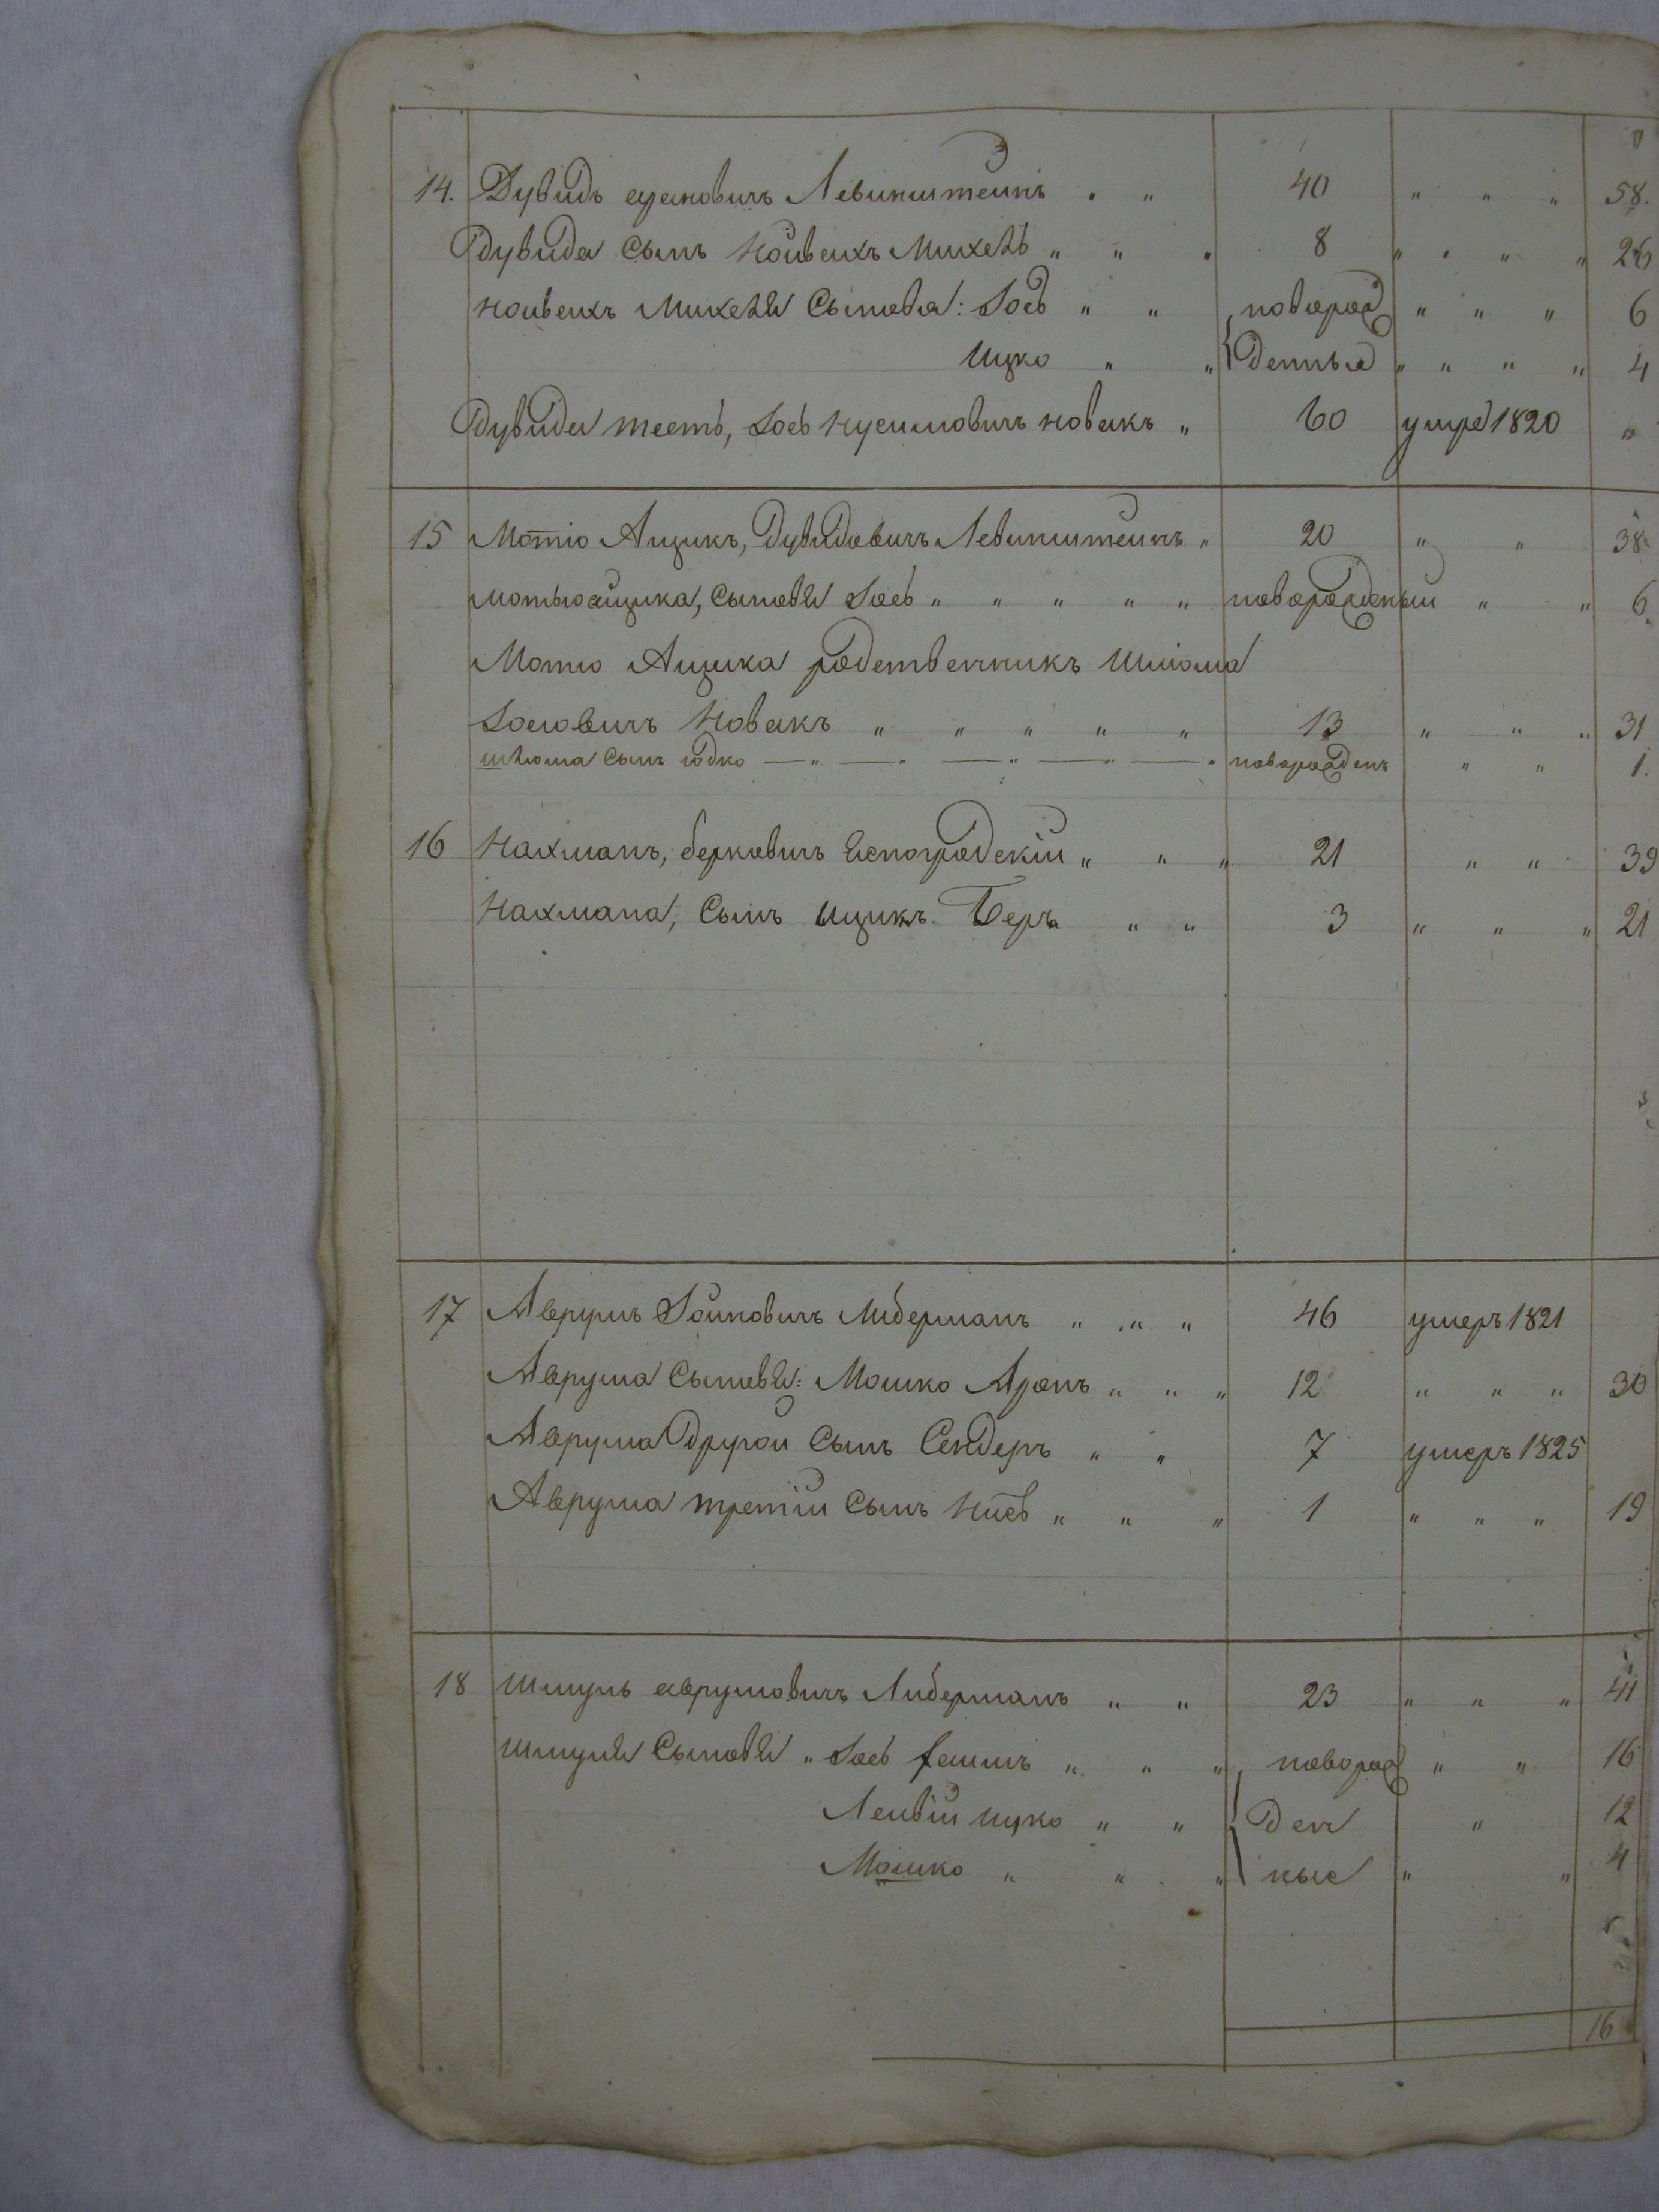 14. Дувидъ Левинштеинъ „ „ 40 „ „ „ 58.
Дувида Сынъ Ноивехъ Михель „ „ „ 8 „ „ „ „ 26
Ноивехъ Михеля Сыновья: Іось „ „ новорож „ „ „ 6
Ицко „ „ денные „ „ „ „ 4
Дувида тесть, Іось Нусимовичъ Новакъ „ 60 умре 1820 „
15 Мотіо Аицикъ, Дувидовичъ Левинштеинъ „ 20 „ „ 38
мотьоаицика, сыновья Іось „ „ „ „ „ новорожденыи „ „ 6
Мотіо Аицика родственникъ Шліома
Іосіовичъ Новакъ „ „ „ „ „ 13 „ „ „ 31
шлиома Сынъ юдко — „ — „ — „ — „ — „ новорожденъ „ „ 1.
16 Нахманъ, берковичъ „ „ „ 21 „ „ 39
Нахмана, Сынъ Ицикъ Беръ „ „ 3 „ „ „ 21
17 Аврумъ Либерманъ „ „ „ 46 умеръ 1821
Аврума Сыновья: Мошко Аронъ „ „ „ 12 „ „ „ 30
Аврума другои Сынъ Сендеръ „ „ 7 умеръ 1825
Аврума третіи Сынъ „ „ „ 1 „ „ „ 19
18 Шмуль аврумовичъ Либерманъ „ „ 23 „ „ „ 41
Шмуля Сыновья „ Іось „ „ „ новорож „ „ 16
Ицко „ „ ден „ 12
Мошко „ „ „ ные „ „ 4
16